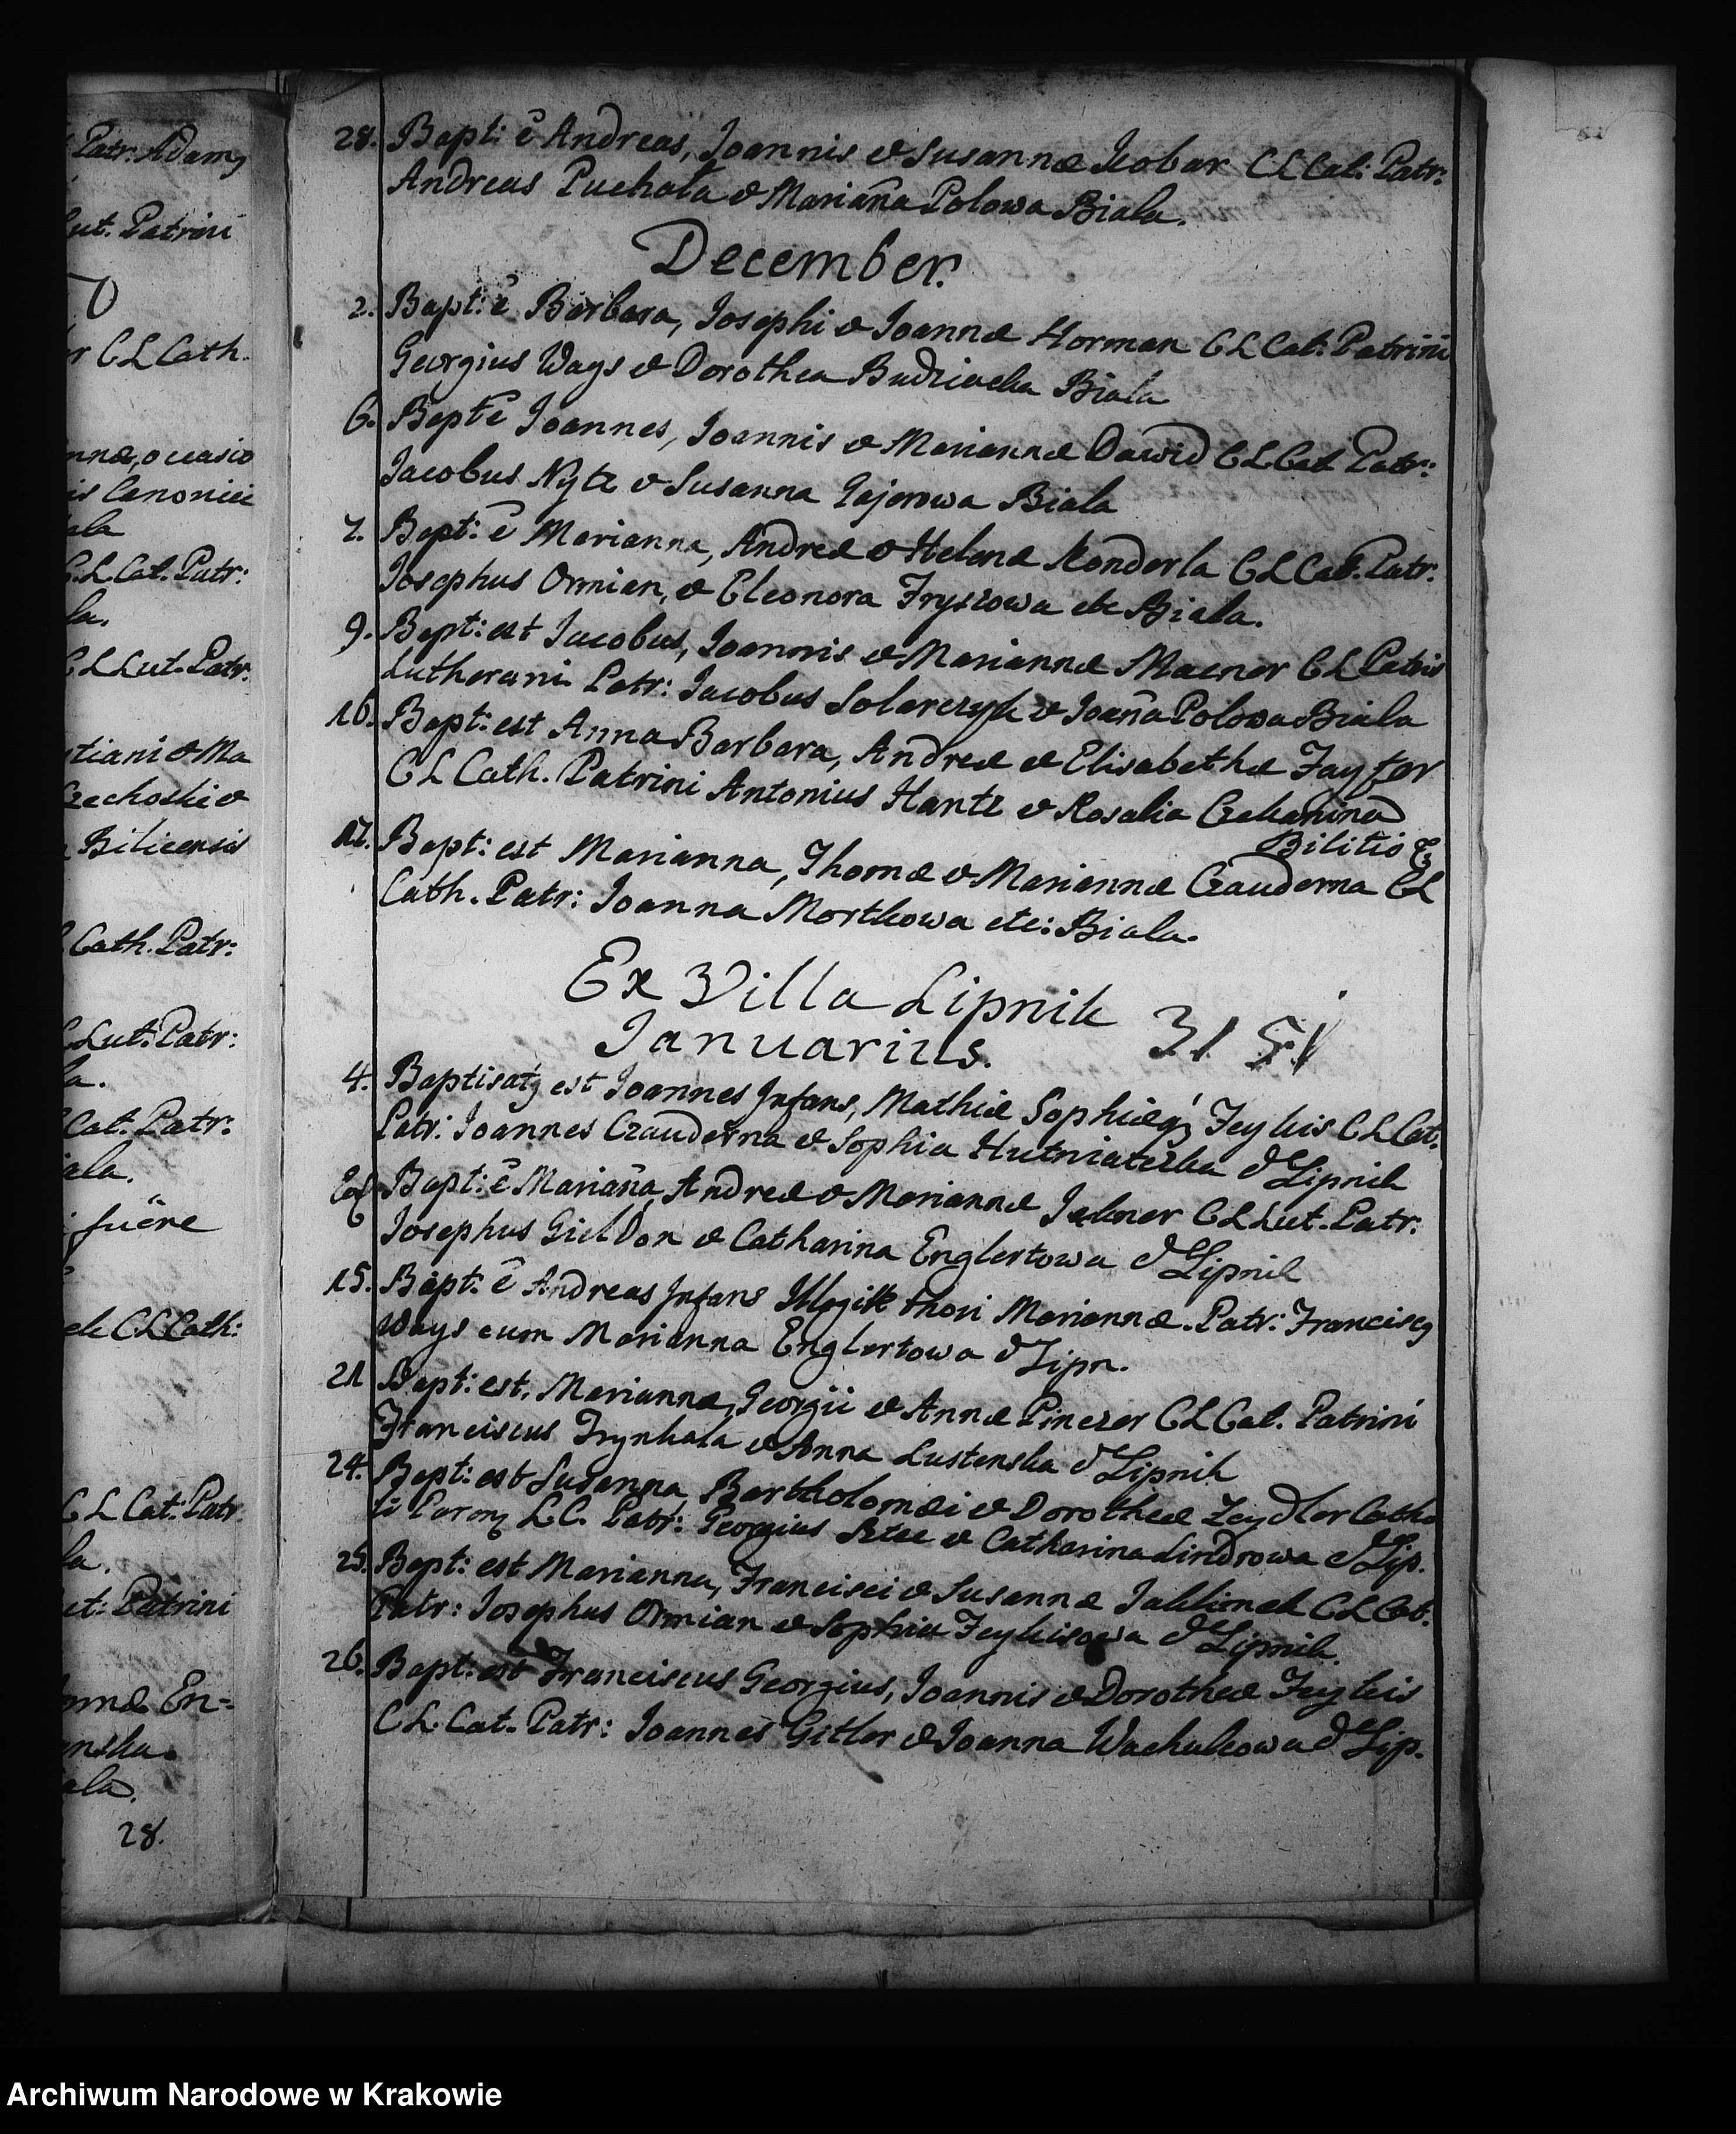 Patr: Adamq
ut. Patrini
r CL Cath.
nnæ, occasio
is Canonici
ala
C.L. Cat. Patr:
la.
CL Lut. Patr:
tiani & Ma
Czechoski &
Bilicensis
Cath. Patr:
C Lut: Patr:
la.
Cat. Patr:
iala.
fuēre
ek CL Cath:
C L Cat. Patr
la.
ut: Patrini
nnæ En=
nska.
ala.
28.
28. Bapt: ē Andreas, Joannis & Susannæ Kobar CL Cat: Patr:
Andreas Puchała & Mariāna Polowa Biala.
December.
2. Bapt: ē Barbara, Josephi & Joannæ Horman CL Cat: Patrini
Georgius Ways & Dorothea Budziacka Biala
6. Bapt ē Joannes, Joannis & Mariannæ Dawid CL Cat Patr:
Jacobus Nytz & Susanna Gajerowa Biala
7. Bapt: ē Marianna, Andreæ & Helenæ Konderla CL Cat. Patr:
Josephus Ormian, & Eleonora Fryszowa etc Biala.
9. Bapt: est Jacobus, Joannis & Mariannæ Macner CL Patris
Lutherani Patr: Jacobus Solarczyk & Joāna Polowa Biala
16. Bapt: est Anna Barbara, Andreæ & Elisabethæ Fayfer
CL Cath. Patrini Antonius Hantz & Rosalia Czekanina
Bilitio
17. Bapt: est Marianna, Thomæ & Mariannæ Czauderna CL
Cath. Patr: Joanna Mortkowa etc: Biala.
Ex Villa Lipnik 31 51
Januarius.
4. Baptisatq est Joannes Infans, Mathiæ Sophiæq Feykis CL Cat.
Patr: Joannes Czauderna & Sophia Hutniaczka d Lipnik
Bapt: ē Mariāna, Andreæ & Mariannæ Jekner CL Lut. Patr:
Josephus Gieldon & Catharina Englertowa d Lipnik
15. Bapt: ē Andreas Infans Illegitt thori Mariannæ. Patr: Franciscq
Ways cum Marianna Englertowa d Lipn.
21 Bapt: est, Marianna, Georgii & Annæ Pinczer CL Cat. Patrini
Franciscus Frynkala & Anna Lustenska d Lipnik
24. Bapt: est Susanna Bartholomæi & Dorotheæ Zeydler Catho
L.C. Patr: Georgius & Catharina Lindrowa d Lip.
25. Bapt: est Marianna, Francisci & Susannæ Jaklinek CL Cat.
Patr: Josephus Ormian & Sophia Feykisowa d Lipnik.
26. Bapt: est Franciscus Georgius, Joannis & Dorotheæ Feykis
CL Cat. Patr: Joannes Gitler & Joanna Wachulcowa d Lip.
Archiwum Narodowe w Krakowie